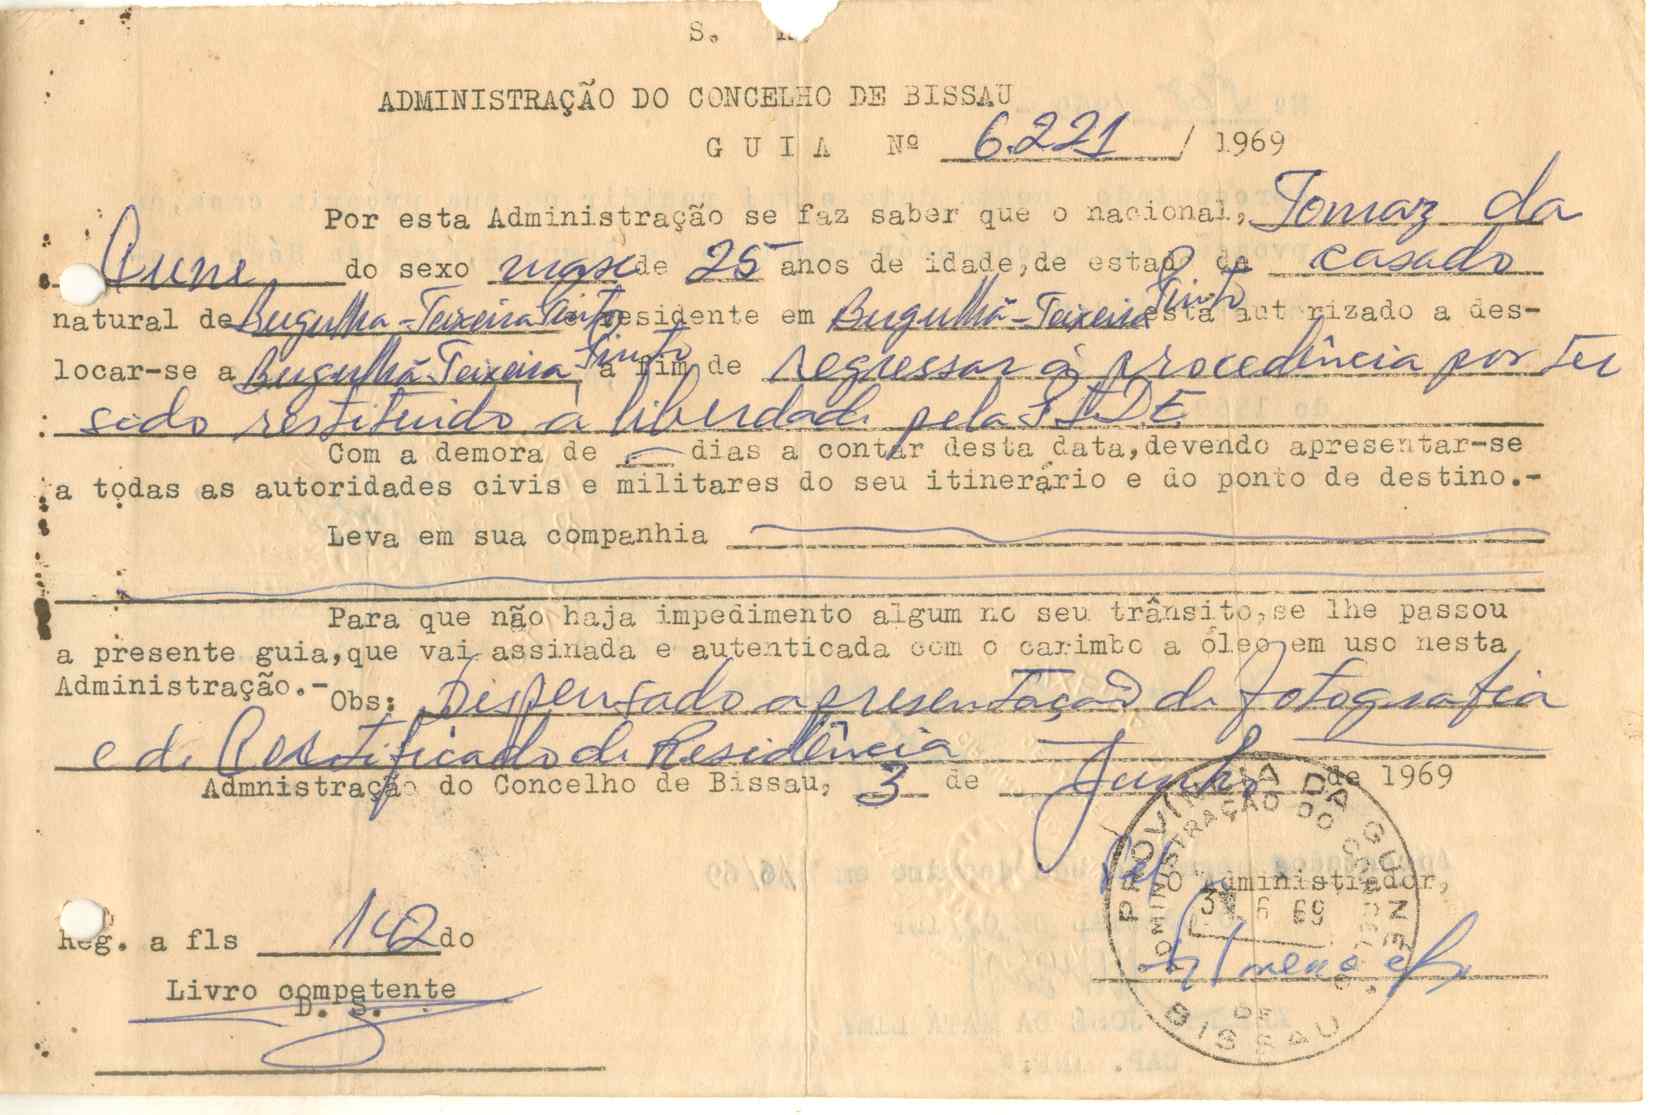 S. R.
ADMINISTRAÇÃO DO CONCELHO DE BISSAU
GUIA Nº 6.221 / 1969
Por esta Administração se faz saber que o nacional, Tomaz da
do sexo masc de 25 anos de idade, de estado de casado
natural de Bugulha-Teixeira Pinto e residente em Bugulhã-Teixeira Pinto está autorizado a des-
locar-se a Bugulhã Teixeira Pinto, a fim de regressar à procedência por ter
sido restituido à liberdade pela P.I.D.E.
Com a demora de — dias a contar desta data, devendo apresentar-se
a todas as autoridades civis e militares do seu itinerário e do ponto de destino.-
Leva em sua companhia
Para que não haja impedimento algum no seu trânsito, se lhe passou
a presente guia, que vai assinada e autenticada com o carimbo a óleo em uso nesta
Administração.- Obs: Dispensado apresentação de fotografia
e de Certificado de Residência
Admnistração do Concelho de Bissau, 3 de Junho de 1969
Pel' O Administrador,
PROVINCIA DA GUINÉ
ADMINISTRAÇÃO DO CONCELHO
3 6 69
DE
BISSAU
Reg. a fls 142 do
Livro competente
D. S.